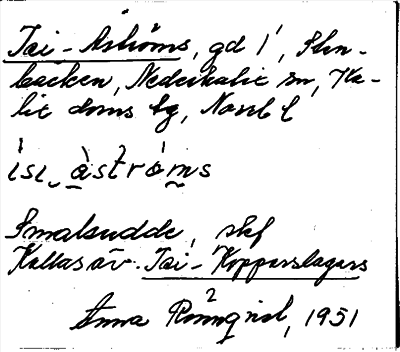 Isi-Åströms, gd 1, Sten-
backen, Nederkalix sn, Ka-
lix doms tg, Norrb l
ìsi‿ àströ́ms
Smalsudde, skf
Kallas äv. Isi-Kopparslagars
Anna Rönnqvist, 1951